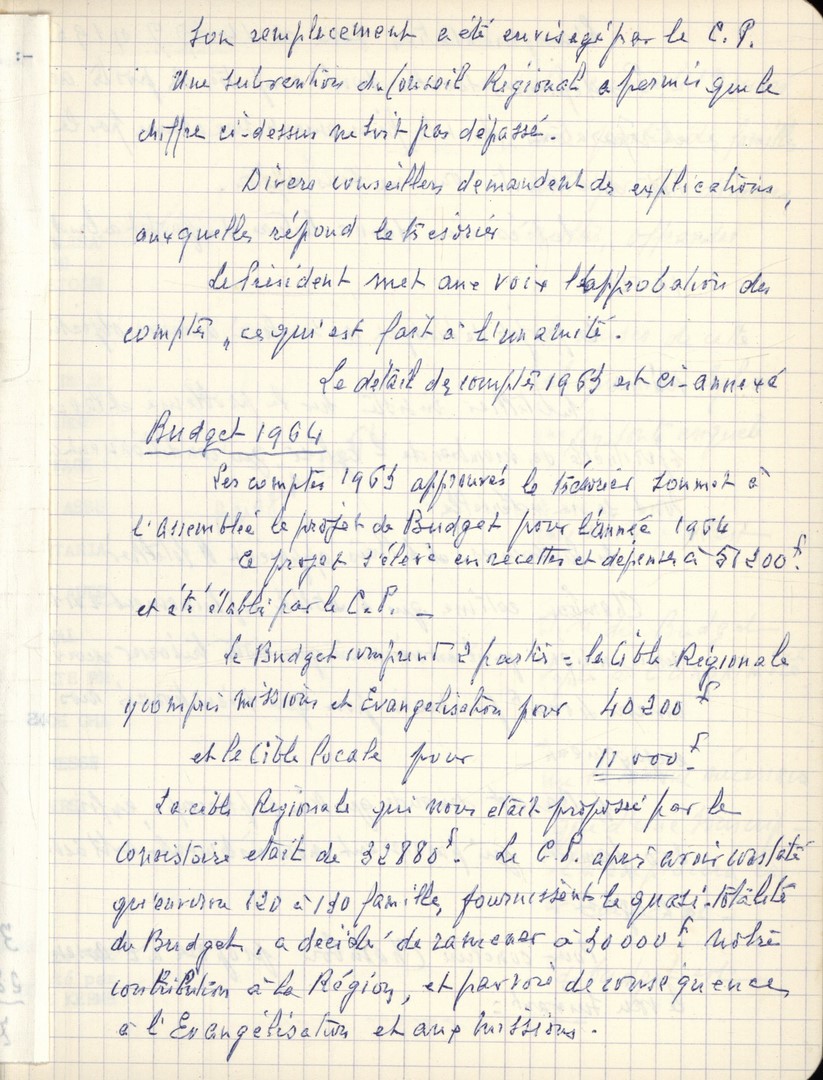 Son remplacement a été envisagé par le C.P.
Une subvention du Conseil Régional a permis que le
chiffre ci-dessus ne soit pas dépassé.
Divers conseillers demandent des explications,
auxquelles répond le trésorier
Le Président met aux voix l'approbation des
comptes, ce qui est fait à l'unamité.
Le détail des comptes 1963 est ci-annexé
Budget 1964
Les comptes 1963 approuvés le trésorier soumet à
l'Assemblée le projet de Budget pour l'année 1964
Ce projet s'élève en recettes et dépenses à 51200 F.
et a été établi par le C.P. _
Le Budget comprend 2 parties = la Cible Régionale
y compris missions et Evangélisation pour 40200 F
et la Cible locale pour 11000 F
La cible Régionale qui nous était proposée par le
Consistoire était de 32880 F. Le C.P. après avoir constaté
qu'environ 120 à 130 familles, fournissent la quasi-totalité
du Budget, a décidé de ramener à 30000 F. notre
contribution à la Région, et par voie de conséquence,
à l'Evangélisation et aux Missions.